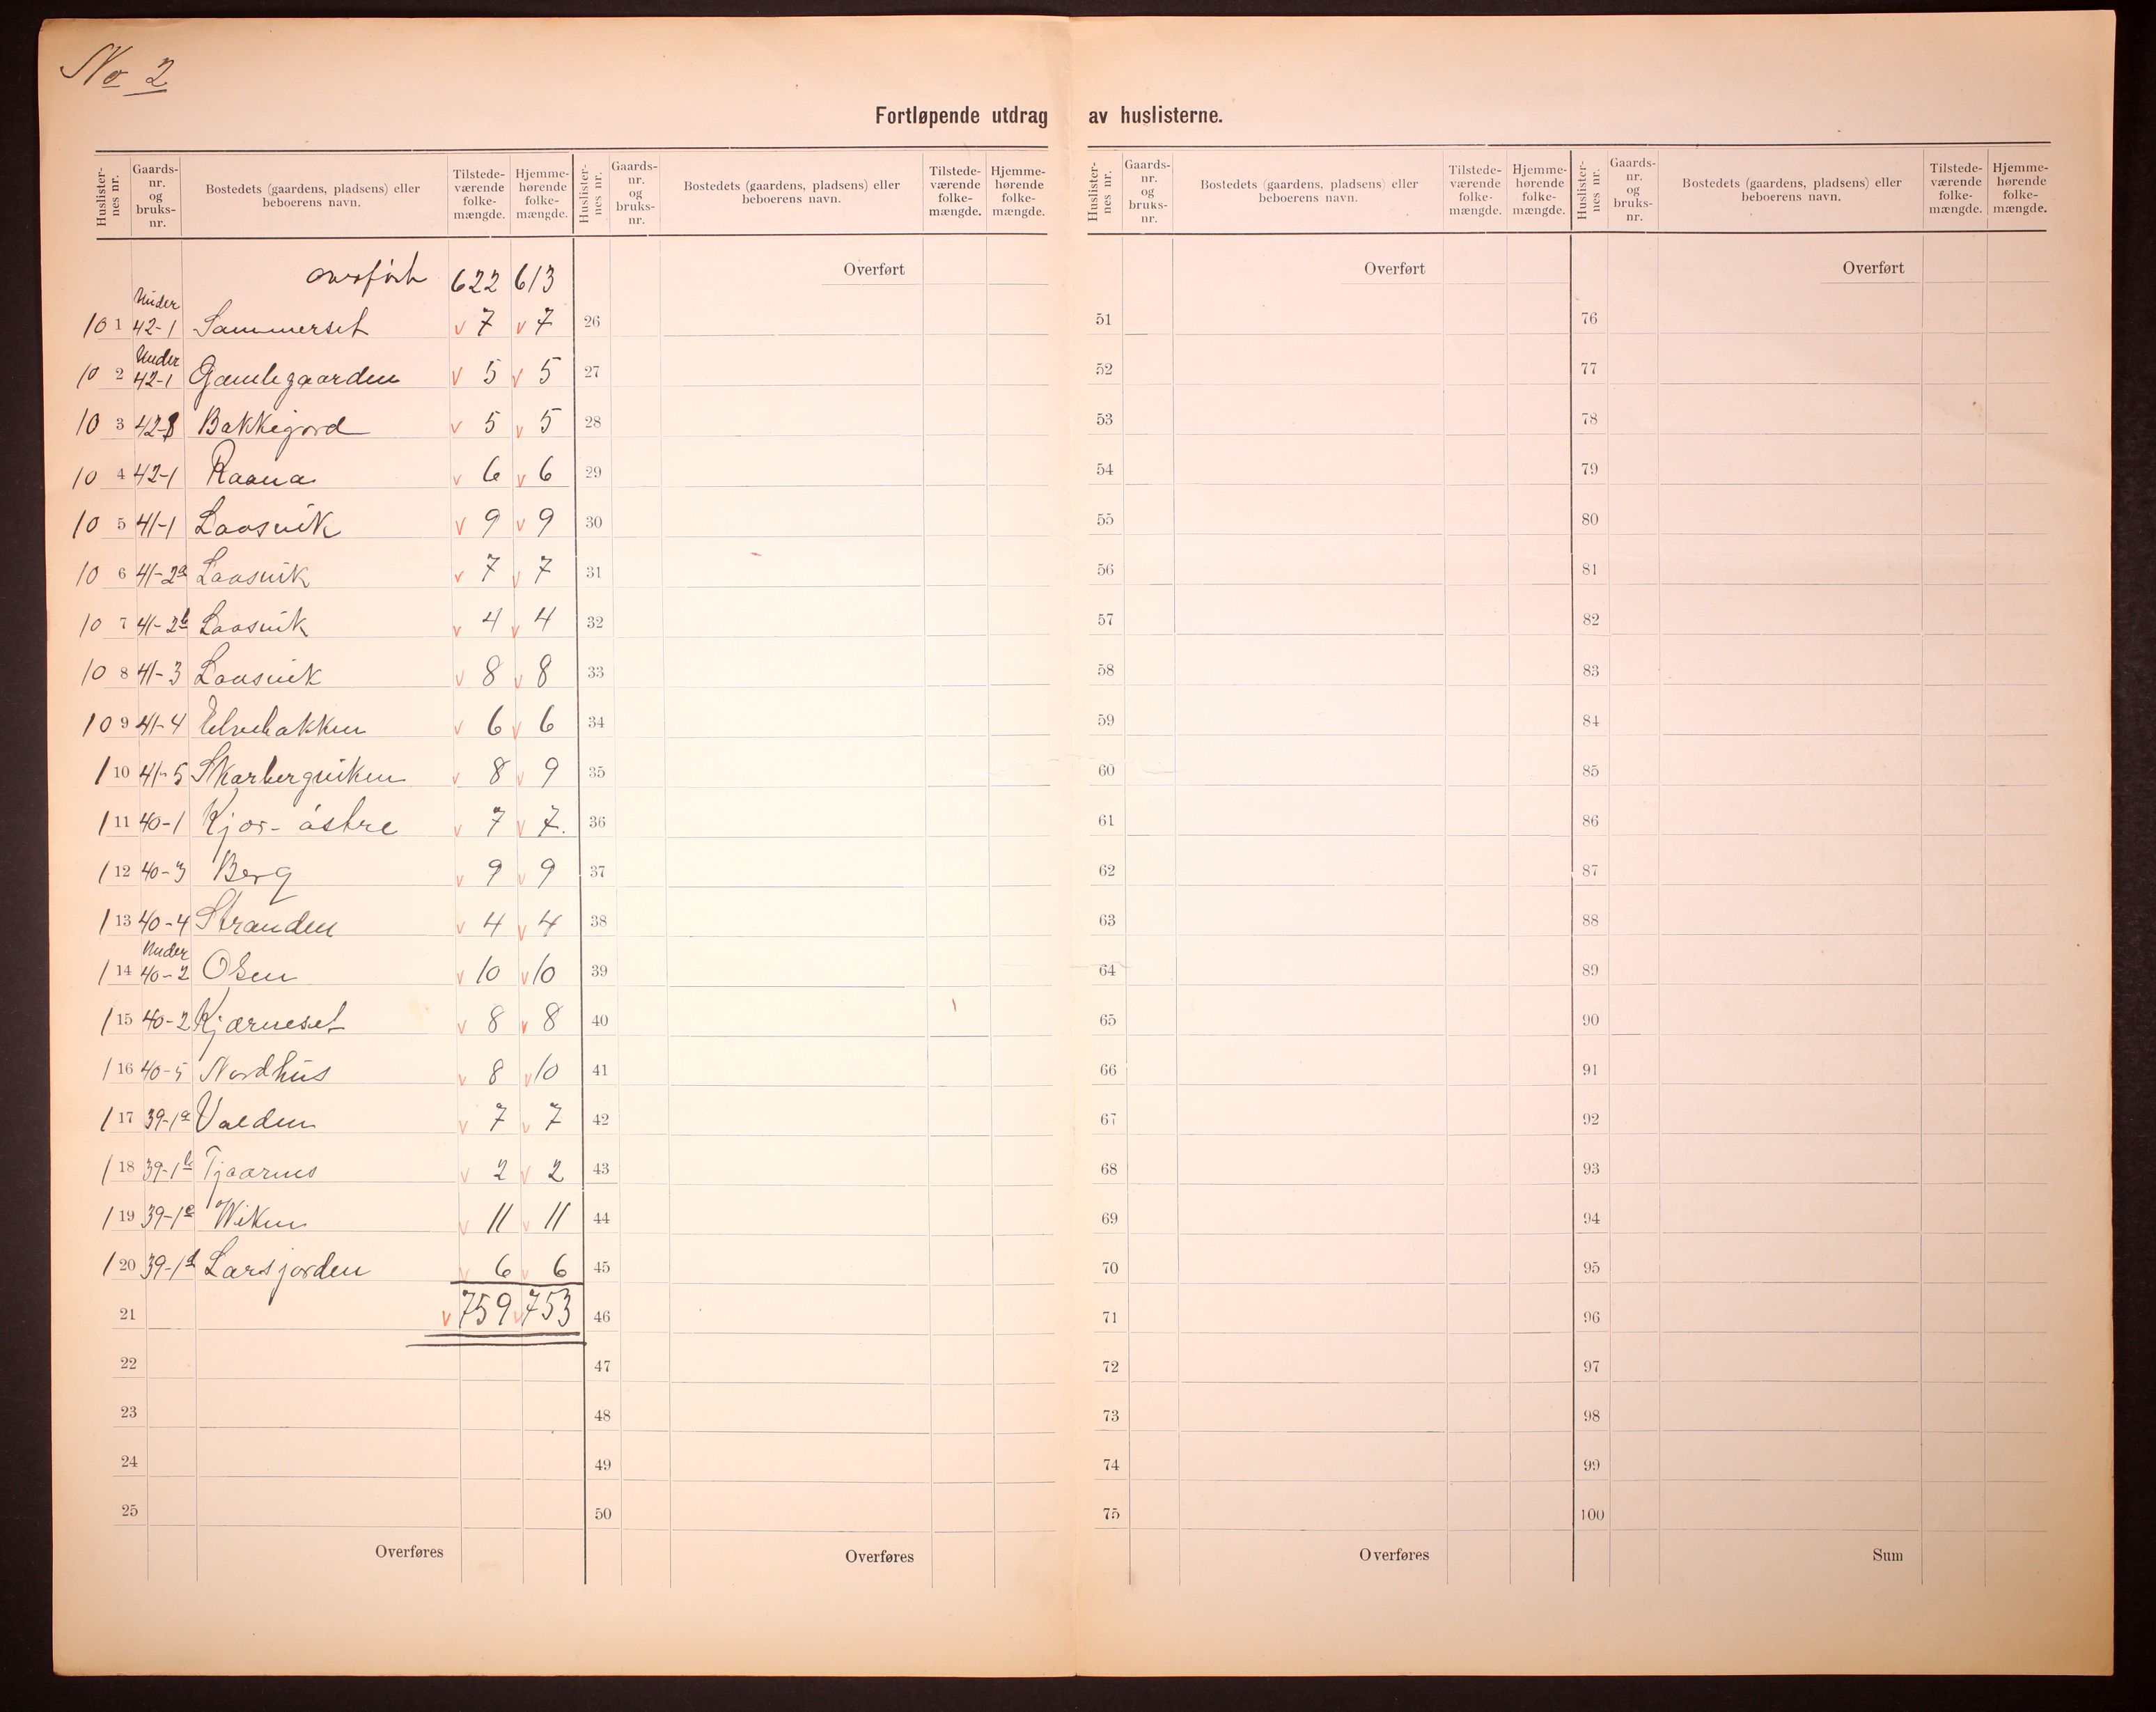 No 2
Fortløpende utdrag av huslisterne.
Huslister-nes nr. Gaards-nr. og bruks-nr. Bostedets (gaardens, pladsens) eller beboerens navn. Tilstede-værende folke-mængde. Hjemme-hørende folke-mængde.
overført 622 613
Under
10 1 42-1 Sammerset v 7 v 7
Under
10 2 42-1 Gamlegaarden v 5 v 5
10 3 42-8 Bakkegord v 5 v 5
10 4 42-1 Raana v 6 v 6
10 5 41-1 Laasvik v 9 v 9
10 6 41-2a Laasvik v 7 v 7
10 7 41-2b Laasvik v 4 v 4
10 8 41-3 Laasvik v 8 v 8
10 9 41-4 Elvebakken v 6 v 6
1 10 41-5 Skarbergviken v 8 v 9
1 11 40-1 Kjør- østre v 7 v 7.
1 12 40-3 Berg v 9 v 9
1 13 40-4 Stranden v 4 v 4
Under
1 14 40-2 Olsen v 10 v 10
1 15 40-2 Kjærneset v 8 v 8
1 16 40-5 Nordhus v 8 v 10
1 17 39-1a Valden v 7 v 7
1 18 39-1b Tjaarnes v 2 v 2
1 19 39-1c Wiken v 11 v 11
1 20 39-1d Larsjorden v 6 v 6
21 v 759 v 753
22
23
24
25
Overføres
Huslister-nes nr. Gaards-nr. og bruks-nr. Bostedets (gaardens, pladsens) eller beboerens navn. Tilstede-værende folke-mængde. Hjemme-hørende folke-mængde.
Overført
26
27
28
29
30
31
32
33
34
35
36
37
38
39
40
41
42
43
44
45
46
47
48
49
50
Overføres
Huslister-nes nr. Gaards-nr. og bruks-nr. Bostedets (gaardens, pladsens) eller beboerens navn. Tilstede-værende folke-mængde. Hjemme-hørende folke-mængde.
Overført
51
52
53
54
55
56
57
58
59
60
61
62
63
64
65
66
67
68
69
70
71
72
73
74
75
Overføres
Huslister-nes nr. Gaards-nr. og bruks-nr. Bostedets (gaardens, pladsens) eller beboerens navn. Tilstede-værende folke-mængde. Hjemme-hørende folke-mængde.
Overført
76
77
78
79
80
81
82
83
84
85
86
87
88
89
90
91
92
93
94
95
96
97
98
99
100
Sum